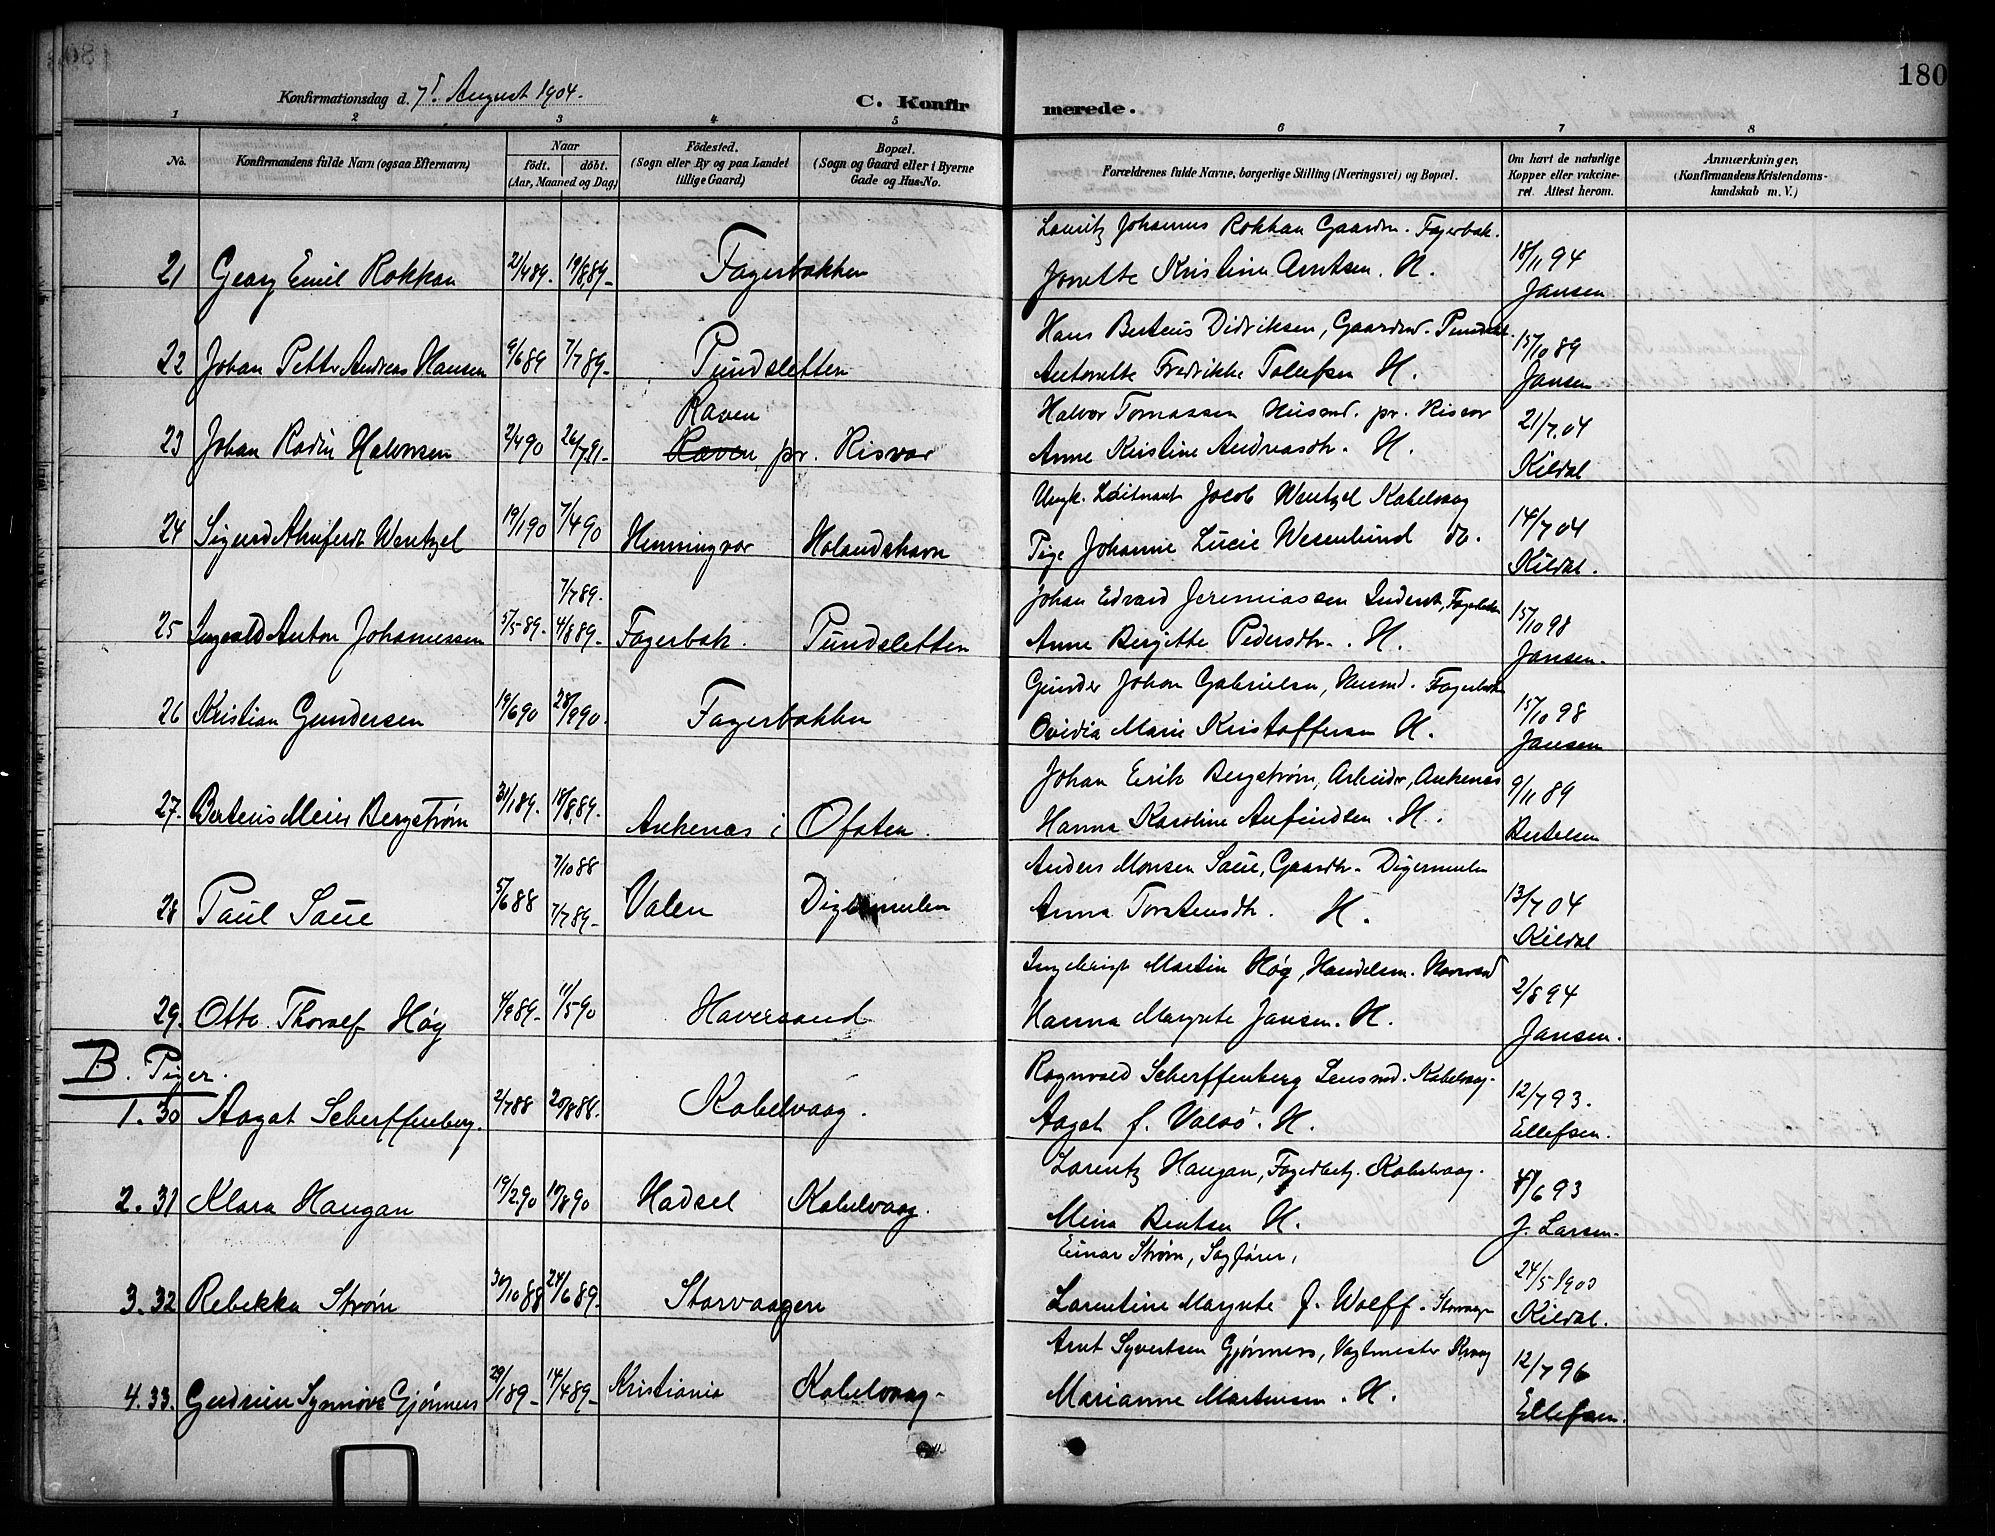 180
Konfirmationsdag d. 7. August 1904.
C. Konfirmerede.
1 2 3 4 5 6 7 8
No.
Konfirmandens fulde Navn (ogsaa Efternavn)
Naar
födt. döbt.
(Aar, Maaned og Dag)
Födested.
(Sogn eller By og paa Landet
tillige Gaard)
Bopæl.
(Sogn og Gaard eller i Byerne
Gade og Hus-No.
Forældrenes fulde Navne, borgerlige Stilling (Næringsvei) og Bopæl.
Om havt de naturlige
Kopper eller vakcine-
ret. Attest herom.
Anmærkninger,
(Konfirmandens Kristendoms-
kundskab m. V.)
Lauritz Johannes Rokkan Gaardm. Fagerbak.
21 Georg Emil Rokkan 2/4 89. 19/8 89 Fagerbakken Jonette Kristine Arntsen. H. 18/11 94
Jansen
Hans Berteus Didriksen, Gaardm.
22 Johan Petter Andreas Hansen 9/6 89 7/7 89 Pundsletten Antonette Fredrikke Tollefsen H. 15/10 89
Jansen
Raven
Halvor Tomassen Husmd. pr. Risvær
23 Johan Radin Halvorsen 2/4 90 26/7 91 Raven, pr. Risvær Anne Kristine Andreasdtr. H. 21/7 04
Kildal
Ungk. Løitnant Jacob Wentzel Kabelvaag
24 Sigurd Wentzel 19/1 90 7/4 90 Henningvær Holandshavn Pige Johanne Lucie Wesenlund do. 14/7 04
Kildal.
7/7 89.
Johan Edvard Jeremiassen Inderst,
25 Ingvald Anton Johannessen 5/5 89. 4/8 89 Fagerbak. Pundsletten Anne Bergitte Pedersdtr. H. 15/10 98
Jansen.
Gunder Johan Gabrielsen, Husmd. Fagerbak
26 Kristian Gundersen 19/6 90 28/9 90. Fagerbakken Ovidia Marie Kristoffersen H. 15/10 98
Jansen
Johan Erik Bergstrøm, Arbeider, Ankenes
27. Berteus Meier Bergstrøm 31/1 89. 18/8 89. Ankenæs i Ofoten. Hanna Karoline Anfindsen. H. 9/11 89
Bertelsen
7/10 88
Anders Monsen Saue, Gaardbr. Digermulen
28 Paul Saue 5/6 88 7/7 89 Valen Digermulen Anna Torstensdtr. H. 13/7 04
Kildal
Ingebrigt Martin Høg, Handelsm.
29. Otto Thoralf Høg 4/9 89 11/5 90 Haversand Hanna Margrete Jansen. H. 2/8 94
Jansen.
B. Piger.
Ragnvald Scherffenberg Lensmd. Kabelvaag.
1. 30 Aagot Scherffenberg. 2/7 88 20/8 88. Kabelvaag. Aagot f. Valsø. H. 12/7 93.
Ellefsen.
Lorentz Haugan, Kabelvaag.
2. 31 Klara Haugan 19/2 90 10/8 90 Hadsel Kabelvaag. Mina Bentsen H. /6 93
J. Larsen.
Einar Strøm, Sagfører,
3. 32 Rebekka Strøm 30/10 88 24/6 89. Storvaagen Laurentine Margrete f. Wolff. Storvaagen 24/5 1903
Kildal.
Arnt Syvertsen Gjønnes, Vagtmester Kvaag
4. 33. Gudrun Synnøve Gjønnes 29/1 89 14/4 89 Kristiania Kabelvaag Marianne Martinsen. H. 12/7 96
Ellefsen.